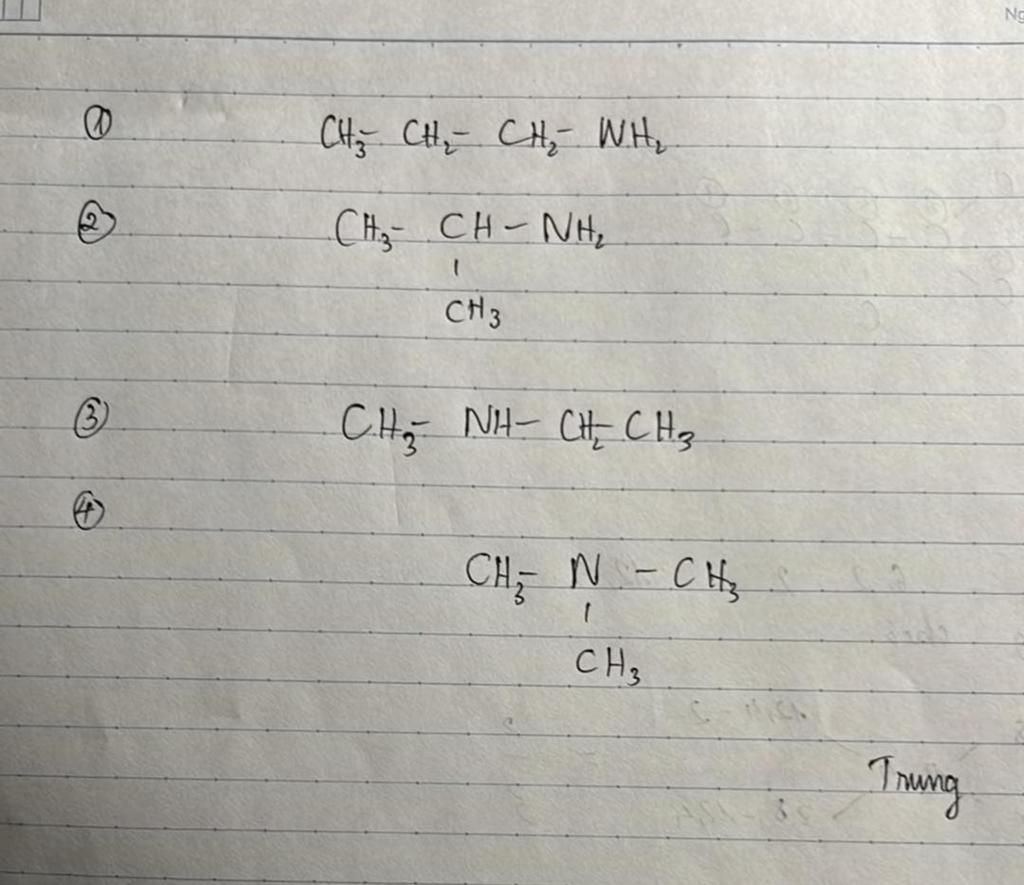 Ng
① CH₃- CH₂- CH₂- NH₂
② CH₃- CH - NH₂
CH₃
③ CH₃- NH- CH₂- CH₃
④
CH₃- N - CH₃
CH₃
Trung